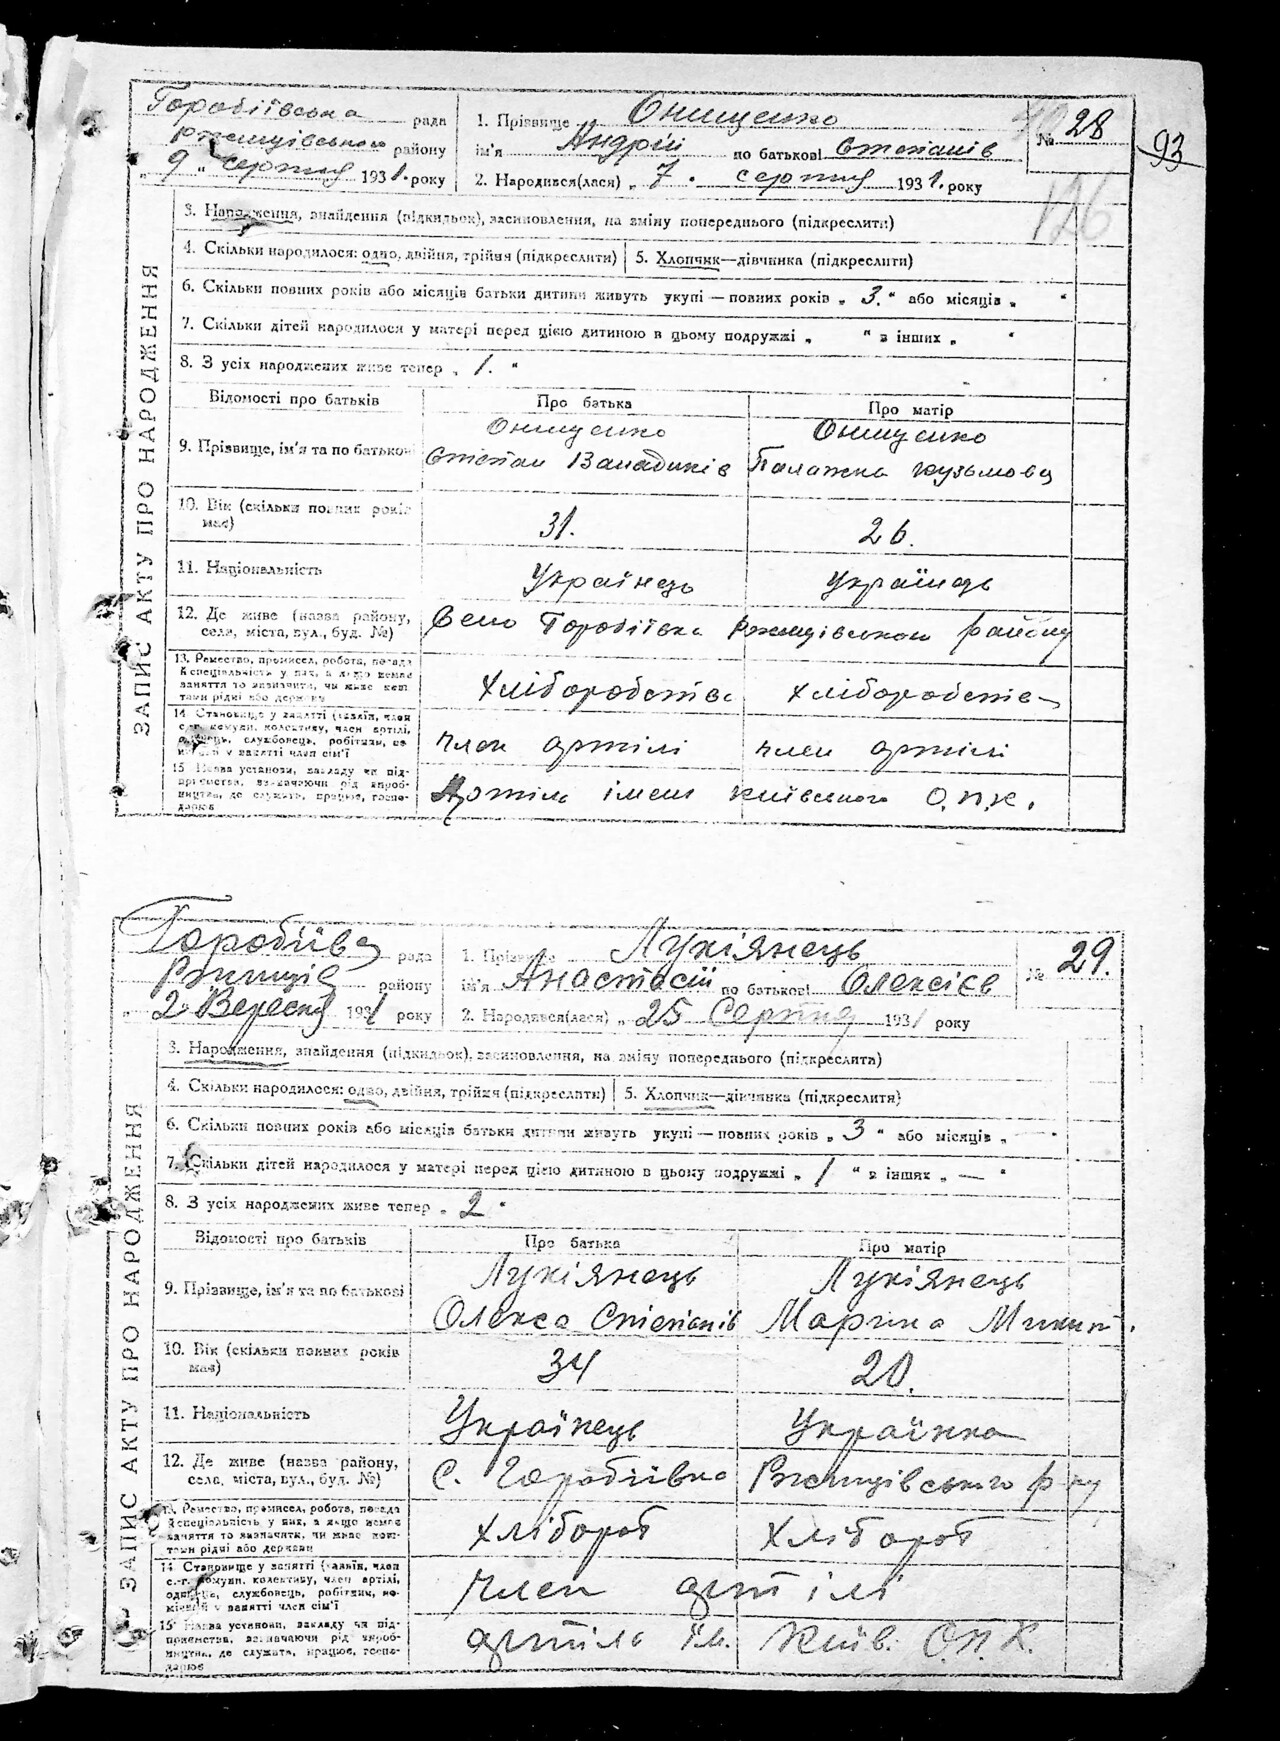 93
126
Горобіївська рада
Ржищівського району
„ 9 „ серпня 1931. року
1. Прізвище Онищенко
ім'я Андрій по батькові Степанів
2. Народився(лася) „ 7 . серпня 1931. року
№ 28
ЗАПИС АКТУ ПРО НАРОДЖЕННЯ
3. Народження, знайдення (підкидьок), засиновлення, на зміну попереднього (підкреслити)
4. Скільки народилося: одно, двійня, трійня (підкреслити)
5. Хлопчик—дівчинка (підкреслити)
6. Скільки повних років або місяців батьки дитини живуть укупі — повних років „ 3. “ або місяців „ “
7. Скільки дітей народилося у матері перед цією дитиною в цьому подружжі „ “ в інших „ “
8. З усіх народжених живе тепер „ 1. “
Відомості про батьків
Про батька
Про матір
9. Прізвище, ім'я та по батькові
Онищенко
Степан
Онищенко
Палажка Кузьмова
10. Вік (скільки повних років має)
31.
26.
11. Національність
Українець
Українець
12. Де живе (назва району, села, міста, вул., буд. №)
Село Горобіївка Ржищівського району
13. Ремество, промисел, робота, посада й спеціяльність у них, а якщо немає заняття то зазначити, чи живе коштами рідні або держави
Хліборобство
Хліборобств
14. Становище у занятті (хазяїн, член с.-г. комуни, колективу, член артілі, одинець, службовець, робітник, помігач у занятті член сім'ї
член артілі
член артілі
15. Назва установи, закладу чи підприємства, зазначаючи рід виробництва, де служить, працює, господарює
Артіль імени Київського О.П.К.
Горобіївка рада
Ржищів району
„ 2 „ Вересня 1931 року
1. Прізвище Лукіянець
ім'я Анастасій по батькові Олексієв
2. Народився(лася) „ 25 Серпня 1931 року
№ 29.
ЗАПИС АКТУ ПРО НАРОДЖЕННЯ
3. Народження, знайдення (підкидьок), засиновлення, на зміну попереднього (підкреслити)
4. Скільки народилося: одно, двійня, трійня (підкреслити)
5. Хлопчик—дівчинка (підкреслити)
6. Скільки повних років або місяців батьки дитини живуть укупі — повних років „ 3 “ або місяців „ — “
7. Скільки дітей народилося у матері перед цією дитиною в цьому подружжі „ 1 “ в інших „ — “
8. З усіх народжених живе тепер „ 2 “
Відомості про батьків
Про батька
Про матір
9. Прізвище, ім'я та по батькові
Лукіянець
Олекса Степанів
Лукіянець
Марина Микит.
10. Вік (скільки повних років має)
34
20.
11. Національність
Українець
Українка
12. Де живе (назва району, села, міста, вул., буд. №)
С. Горобіївка Ржищівського р-ну
13. Ремество, промисел, робота, посада й спеціяльність у них, а якщо немає заняття то зазначити, чи живе коштами рідні або держави
Хлібороб
Хлібороб
14. Становище у занятті (хазяїн, член с.-г. комуни, колективу, член артілі, одинець, службовець, робітник, помігач у занятті член сім'ї
член артілі
15. Назва установи, закладу чи підприємства, зазначаючи рід виробництва, де служить, працює, господарює
артіль ім. Київ. О.П.К.